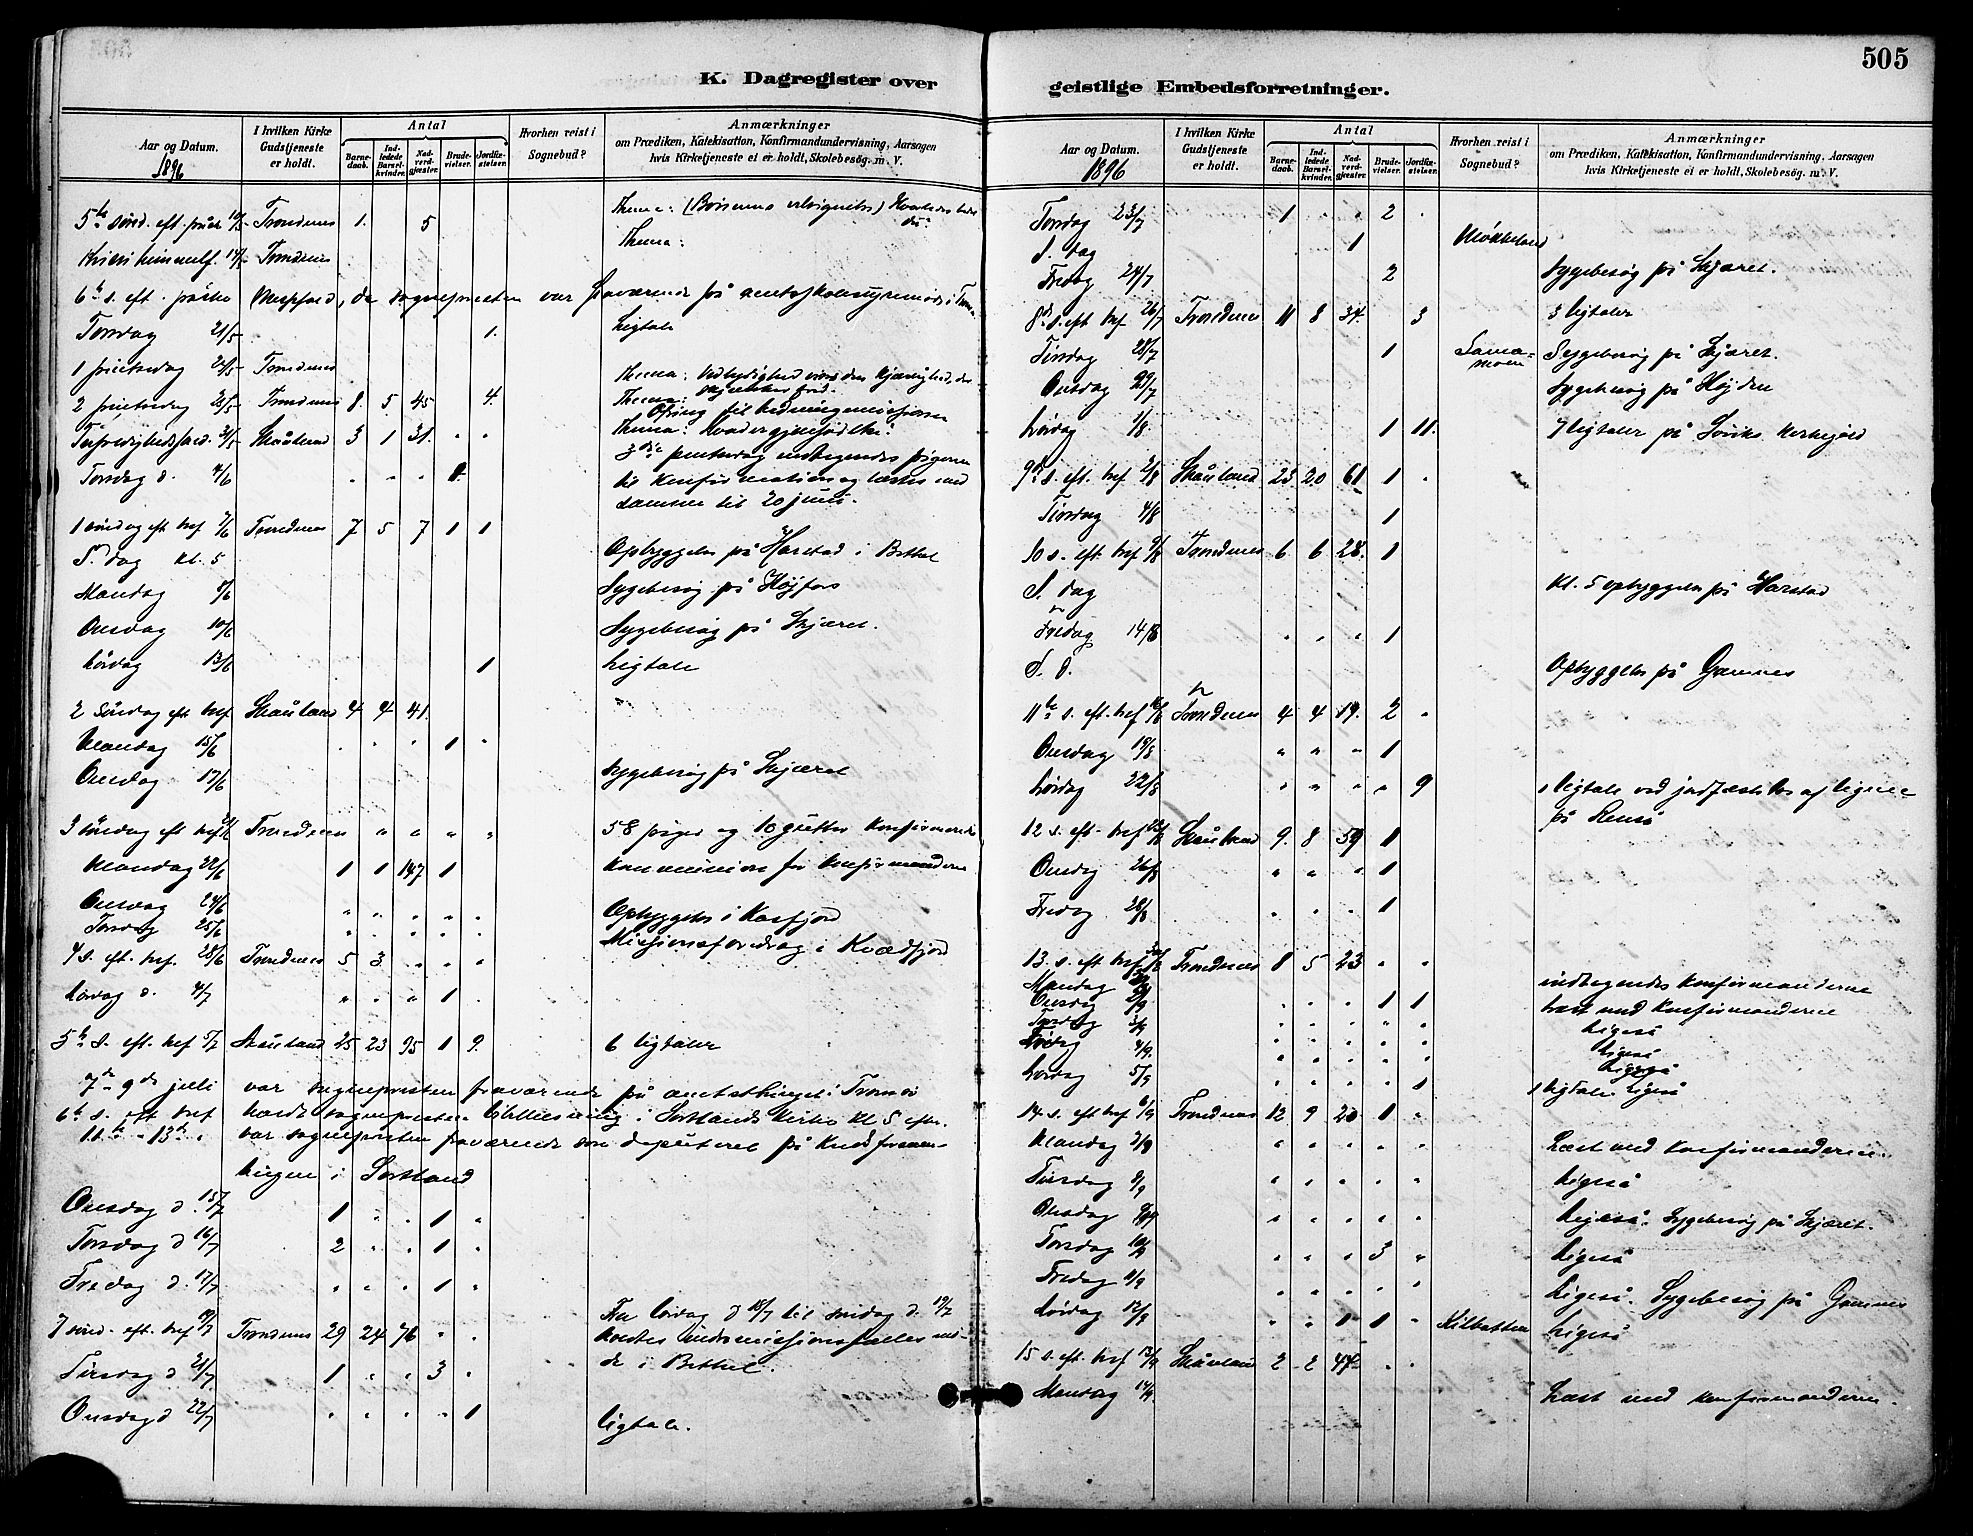 505
K. Dagregister over
geistlige Embedsforretninger.
Aar og Datum. I hvilken Kirke Gudstjeneste er holdt. Antal Hvorhen reist i Sognebud? Anmærkninger
Barnedaab. Indledede Barselkvinder. Nadverdgjæster. Brudevielser. Jordfæstelser.
om Prædiken, Katekisation, Konfirmandundervisning, Aarsagen
hvis Kirketjeneste ei er holdt, Skolebesøg. m. V.
1896
5te sønd. eft. påske 10/5 Trondenes 1. 5 Thema:
Kristi himmelf. 14/5 Trondenes Thema:
6te s. eft. påske Messfald, da sognepresten var fraværende på amtsskolestyremøde i Tromsø
Torsdag 21/5 1. Ligtale
1 pintsedag 24/5 Trondenes Thema:
2 pintsedag 25/5 Trondenes 8. 5 45 4. Thema:
Ofring til hedningemissionen
31/5 Skånland 3 1 31. " " Thema:
Torsdag d. 4/6 " " " 1 3die pintsedag indtegnedes pigerne
til konfirmation og læstes med
samme til 20 juni.
1 søndag eft tref 7/6 Trondenes 7 5 7 1 1
S. dag kl. 5 Opbyggelse på Harstad i Bethel
Mandag 8/6 Sygebesøg på Højfors
Onsdag 10/6 Sygebesøg på Skjæret.
Lørdag 13/6 1 Ligtale
2 Søndag eft tref Skånland 4 4 41.
Mandag 15/6 " " " 1 "
Onsdag 17/6 Sygebesøg på Skjæret
3 søndag eft tref 21/6 Trondenes " " " " " 58 piger og 10 gutter konfirmerede
Mandag 22/6 1 1 147 1 Kommunion for konfirmanderne
Onsdag 24/6 " " " " " Opbyggelse i Kasfjord
Torsdag 25/6 " " " " " Missionsforedrag i Kvædfjord
4 s. eft. tref. 28/6 Trondenes 5 3 " " "
Lørdag d. 4/7 " " " 1 "
5te s. eft. tref 5/7 Skånland 25 23 95 1 9. 6 ligtaler
7de-9de juli var sognepresten fraværende på amtsthinget i Tromsø
6te s. eft tref holdt sognepresten bibellæsning i Sortlands kirke kl 5 efter.
11te-13de " var sognepresten fraværende som deputeret på kredsforsam-
lingen i Sortland
Onsdag d. 15/7 1 " " 1 "
Torsdag d 16/7 2 " " 1 "
Fredag d. 17/7 " " " 1 "
7 sønd. eft. tref 19/7 Trondenes 29 24 76 " " Fra lørdag d 18/7 til søndag d. 19/7
holdtes indremissionsfællesmø-
de i Bethel.
Tirsdag d 21/7 1 " " 3 "
Onsdag d 22/7 " " " " 1 ligtale.
Aar og Datum. I hvilken Kirke Gudstjeneste er holdt. Antal Hvorhen reist i Sognebud? Anmærkninger
Barnedaab. Indledede Barselkvinder. Nadverdgjæster. Brudevielser. Jordfæstelser.
om Prædiken, Katekisation, Konfirmandundervisning, Aarsagen
hvis Kirketjeneste ei er holdt, Skolebesøg. m. V.
1896
Torsdag 23/7 1 " " 2 "
S. dag 1 Møkkeland
Fredag 24/7 2 Sygebesøg på Skjæret.
8de s. eft tref 26/7 Trondenes 11 8 34. 3 3 ligtaler
Tirsdag 28/7 1 Sama-moen Sygebesøg på Skjæret.
Onsdag 29/7 Sygebesøg på Højden
Lørdag 1/8 1 11. 7 ligtaler på kirkegård
9de s. eft. tref 2/8 Skånland 23 20 61 1 "
Tirsdag 4/8 1
10 s. eft tref 9/8 Trondenes 6 6 28. 1
S. dag Kl. 5 opbyggelse på Harstad
Fredag 14/8 " " " 1
S. d. Opbyggelse på Gamnes
11te s. eft. tref 16/8 Trondenes 4 4 19. 2 "
Onsdag 19/8 " " " 1
Lørdag 22/8 " " " " 9 1 ligtale ved jordfæstelse af ligene
på
12 s. eft. tref 23/8 Skånland 9. 8 59 1
Onsdag 26/8 " " " 1
Fredag 28/8 " " " 1
13. s. eft tref 30/8 Trondenes 8 5 23 " "
Mandag indtegnedes konfirmanderne
Onsdag 2/9 " " " 1 1 læst med konfirmanderne
Torsdag 3/9 " " " " " Ligeså
4/9. " " " " " Ligeså
Lørdag 5/9 " " " " 1 1 ligtale. Ligeså
14 s. eft tref 6/9 Trondenes 12 9 20 1 "
Mandag 7/9 " " " " " Læst med konfirmanderne.
Tirsdag 8/9 " " " " " Ligeså
Onsdag 9/9 " " " " " Ligeså. Sygebesøg på Skjæret.
Torsdag 10/9 " " " 3 " Ligeså
Fredag 11/9 " " " " " Ligeså. Sygebesøg på Gamnes
Lørdag 12/9 " " 1 1 " Kilbotten Ligeså
15 s. eft. tref 13/9 Skånland 2 2 47 " "
Mandag 14/9 Læst med konfirmanderne.